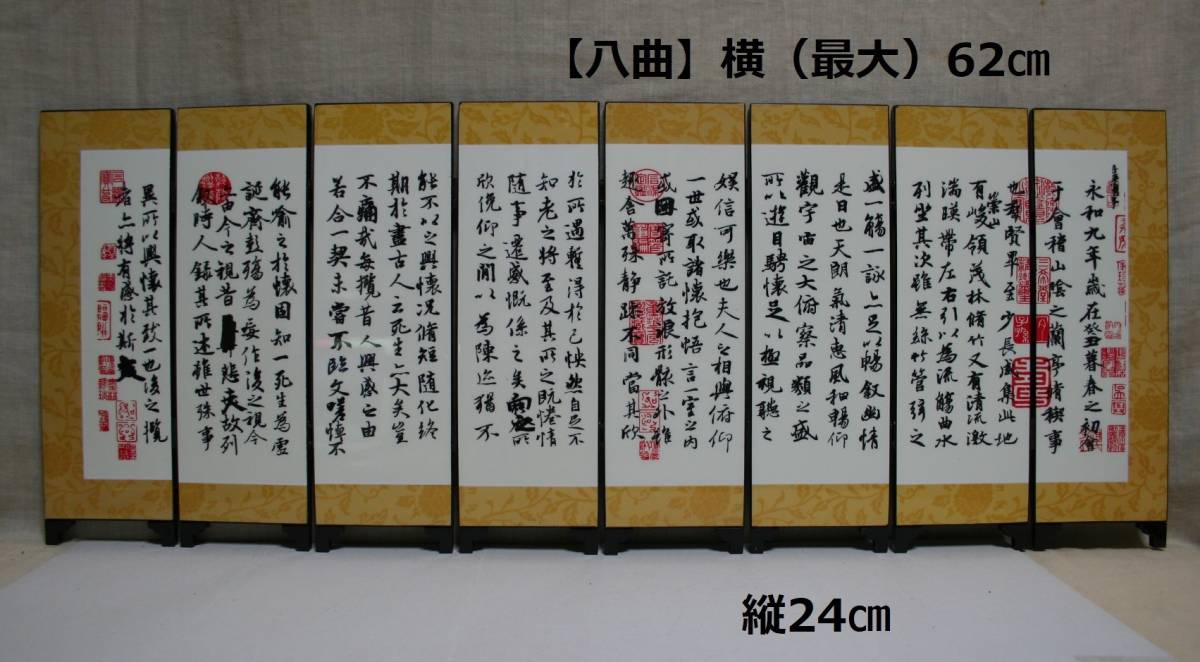 【八曲】横（最大）62㎝
永和九年歲在癸丑暮春之初會
于會稽山陰之蘭亭脩稧事
也羣賢畢至少長咸集此地
有崇山峻領茂林脩竹又有清流激
湍暎帶左右引以為流觴曲水
列坐其次雖無絲竹管弦之
盛一觴一詠亦足以暢叙幽情
是日也天朗氣清惠風和暢仰
觀宇宙之大俯察品類之盛
所以遊目騁懷足以極視聽之
娛信可樂也夫人之相與俯仰
一世或取諸懷抱悟言一室之內
或因寄所託放浪形骸之外雖
趣舍萬殊静躁不同當其欣
於所遇暫得於己怏然自足不
知老之將至及其所之既惓情
隨事遷感慨係之矣向之所
欣俛仰之閒以為陳迹猶不
能不以之興懷況脩短隨化終
期於盡古人云死生亦大矣豈
不痛哉每攬昔人興感之由
若合一契未嘗不臨文嗟悼不
能喻之於懷固知一死生為虛
誕齊彭殤為妄作後之視今
亦由今之視昔悲夫故列
叙時人錄其所述雖世殊事
異所以興懷其致一也後之攬
者亦將有感於斯文
縦24㎝